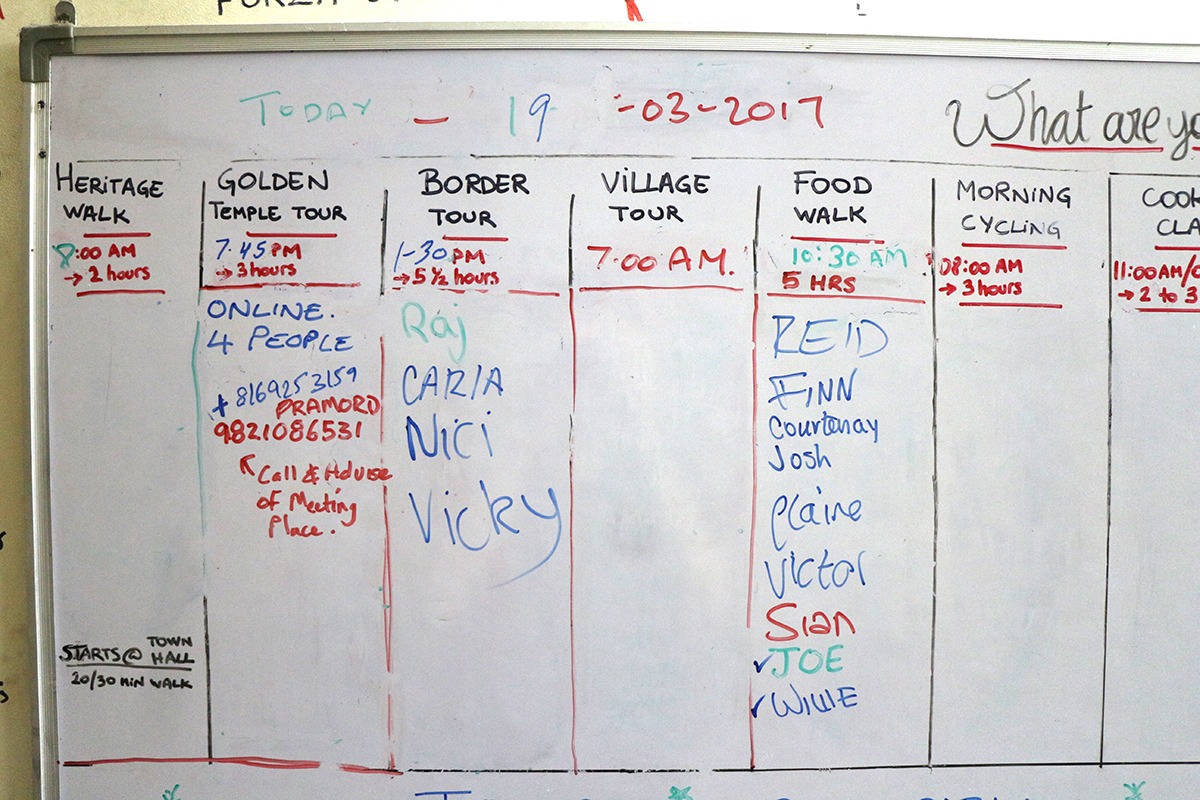 TODAY - 19 -03-2017
What are
HERITAGE
WALK
8:00 AM
→ 2 hours
STARTS@ TOWN HALL
20/30 MIN WALK
GOLDEN
TEMPLE TOUR
7.45 PM
→ 3 hours
ONLINE.
4 PEOPLE
+ 8169253159
PRAMORD
9821086531
Call & Advise
of Meeting
Place.
BORDER
TOUR
1-30 PM
→ 5 1/2 hours
Raj
CARIA
Nici
Vicky
VILLAGE
TOUR
7.00 AM.
FOOD
WALK
10:30 AM
5 HRS
REID
FINN
Courtenay
Josh
Elaine
Victor
Sian
✓JOE
✓WILLIE
MORNING
CYCLING
08:00 AM
→ 3 hours
COOK
CLA
11:00 AM/
→ 2 to 3